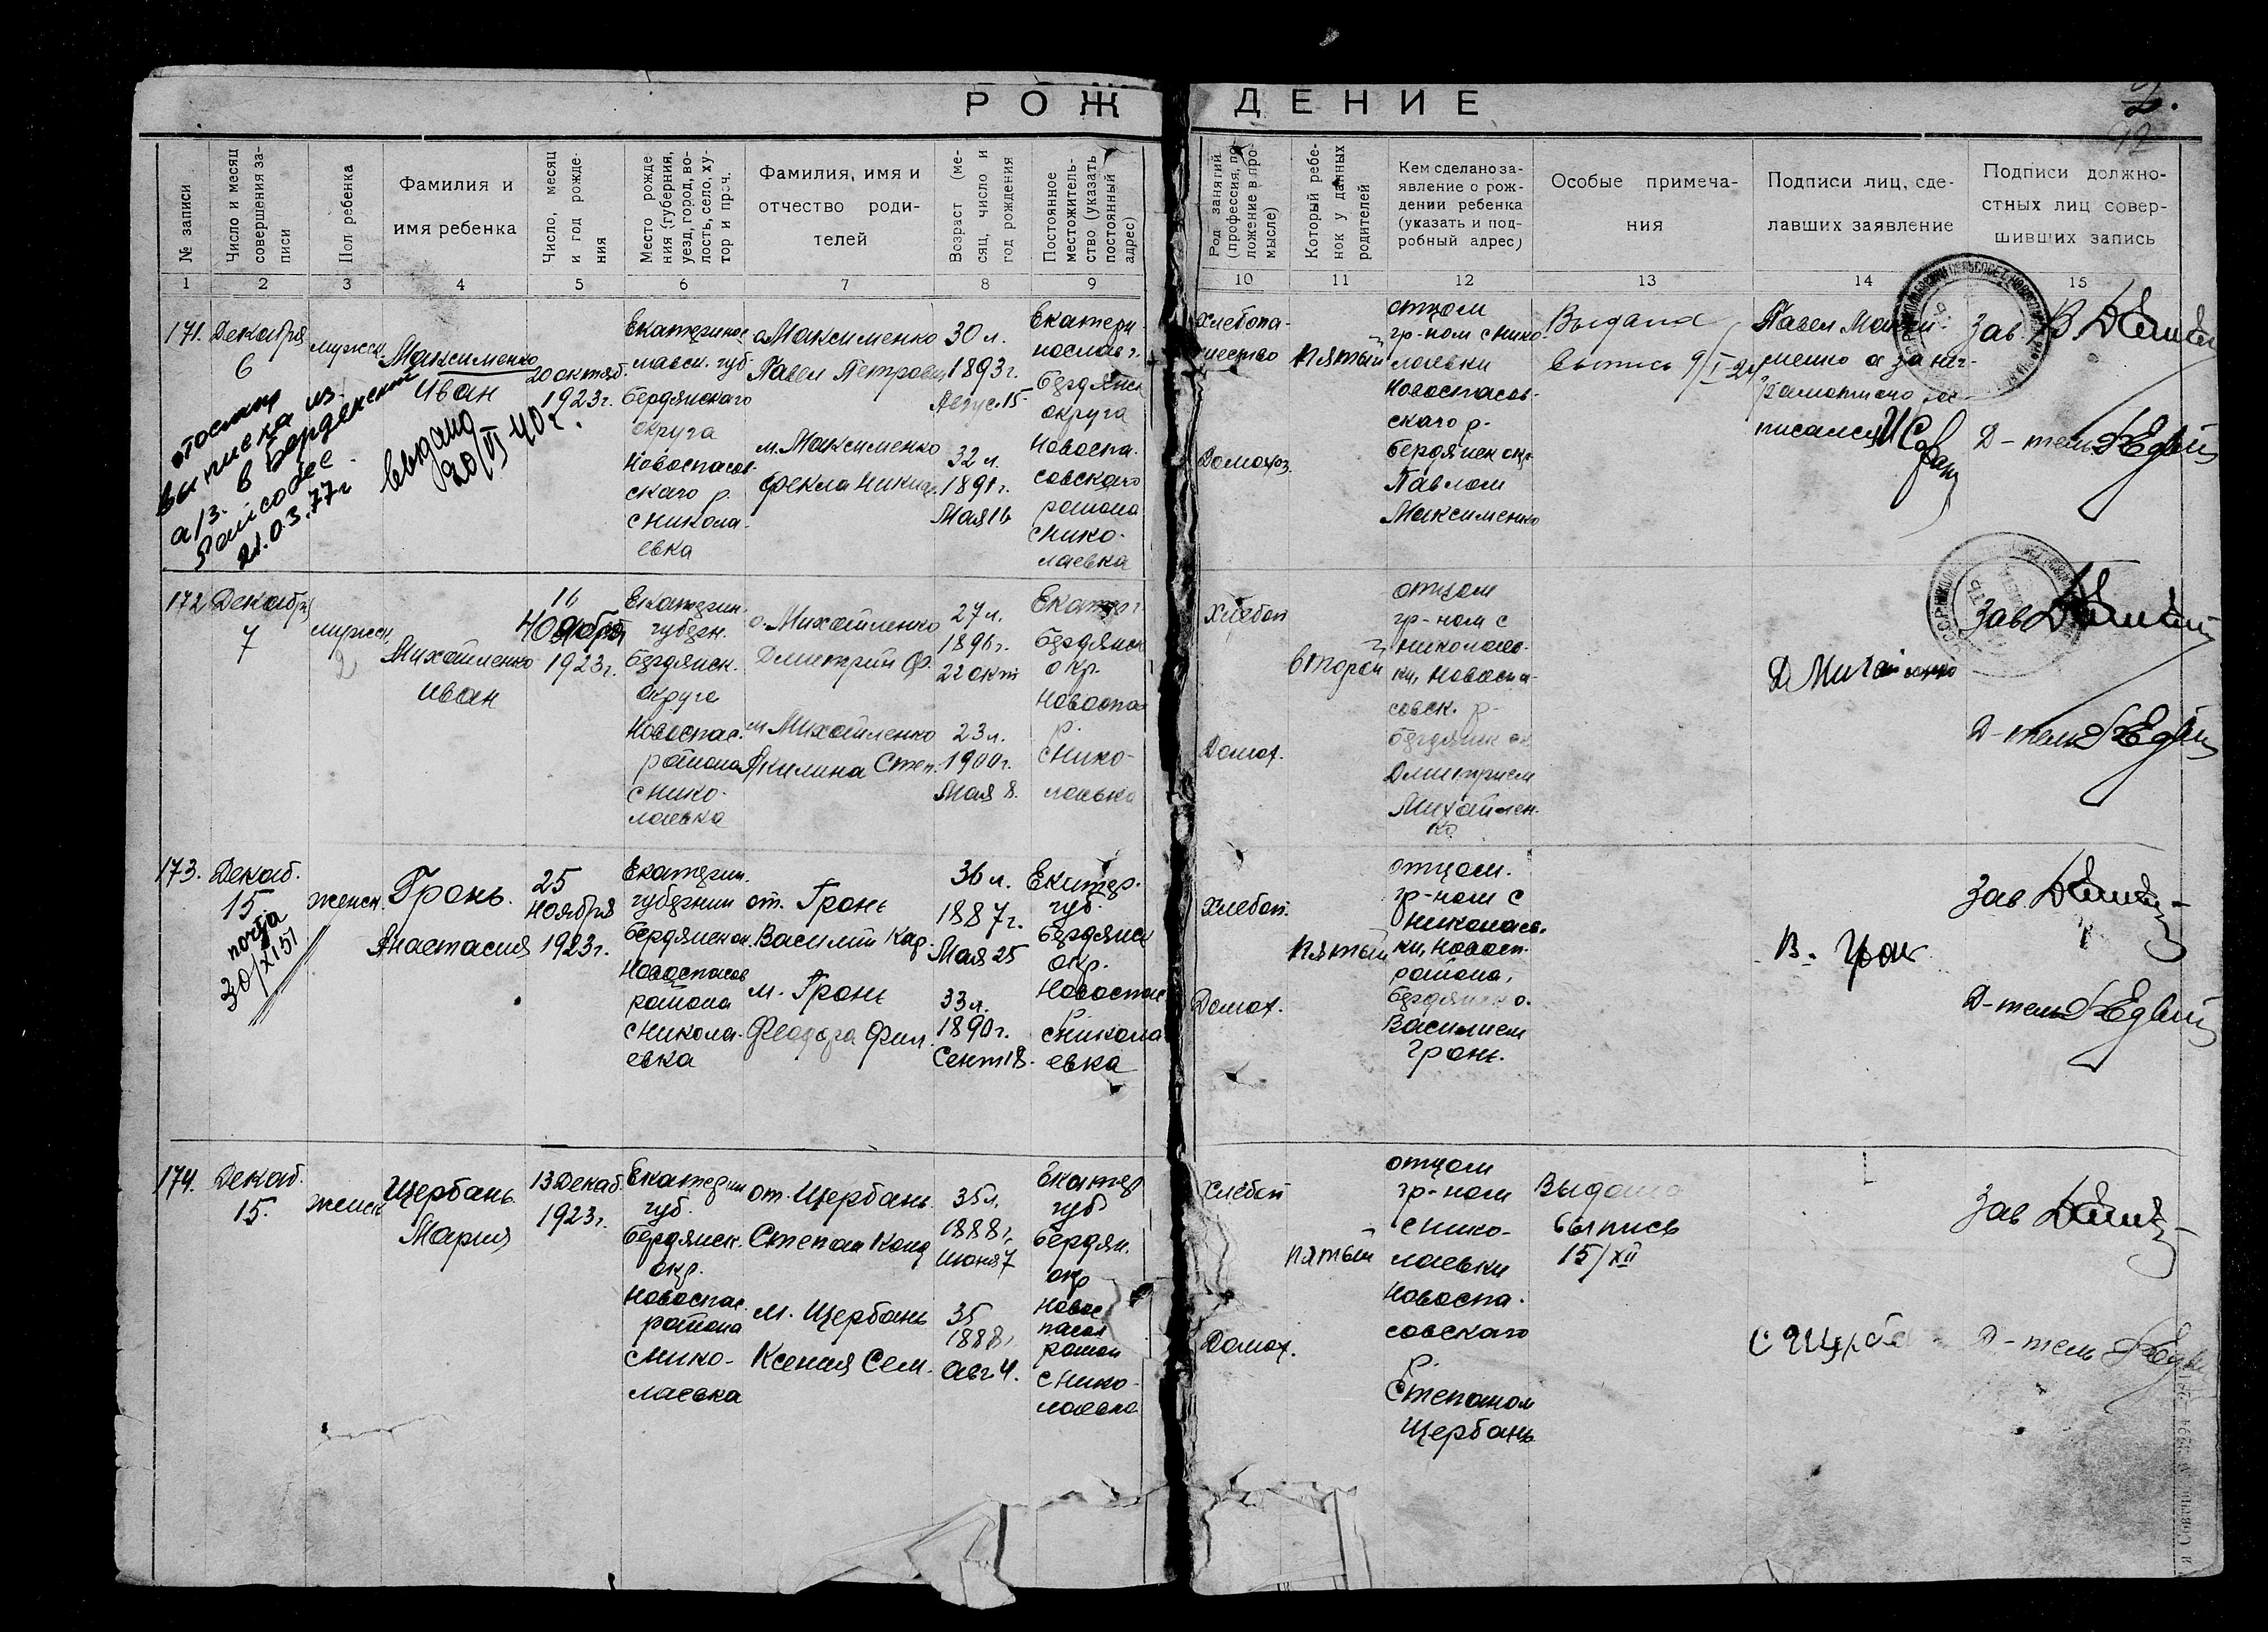 РОЖДЕНИЕ
2.
№ записи
Число и месяц совершения за-
писи
Пол ребенка
Фамилия и
имя ребенка
Число, месяц
и год рожде-
ния
Место рожде
ния (губерния,
уезд, город, во-
лость, село, ху-
тор и проч.
Фамилия, имя и
отчество роди-
телей
Возраст (ме-
сяц, число и
год рождения
Постоянное
местожитель-
ство (указать
постоянный
адрес)
Род занятий
(профессия, по
ложение в про-
мысле)
Который ребе-
нок у данных
родителей
Кем сделано за-
явление о рож-
дении ребенка
(указать и под-
робный адрес)
Особые примеча-
ния
Подписи лиц, сде-
лавших заявление
Подписи должно-
стных лиц совер-
шивших запись
1 2 3 4 5 6 7 8 9 10 11 12 13 14 15
171.
Декабря
6
мужск.
Максименко
Иван
20 октяб.
1923г.
Екатеринос
лавск. губ
Бердянскаго
округа
Новоспасов
скаго р.
с Никола-
евка
о Максименко
Павел Петрович
м. Максименко
Фекла Никит.
30 л.
1893г.
Авгус. 15
32 л.
1891г.
Мая 16
Екатери
нослав г.
Бердянск
округа
Новоспа.
совскаго
района
с Нико-
лаевка
Хлебопа-
шество
Домохоз.
пятый
отцом
гр-ном с Нико-
лаевки
Новоспасов-
скаго р-
Бердянск окр.
Павлом
Максименко
Выдана
выпись 9/I-24
Павел Макси
менко а за не-
грамотного рос-
писался
Зав.
Д-тель
выписка из
а/з. в Бердянский
Райсобес
21.03.77г
выдано
20/VI 40г.
172
Декабря
7
мужск.
Михайленко
Иван
16
Ноября
1923г.
Екатерин.
губерн.
Бердянск.
округа
Новоспас.
района
с Нико-
лаевка
о. Михайленко
Дмитрий Ф.
м Михайленко
Акилина Степ.
27 л.
1896г.
22 окт
23 л.
1900г.
Мая 8.
Екатер.
Бердянск
окр.
Новоспа
р.
с Нико-
лаевка
Хлебоп
Домох.
второй
отцом
гр-ном с
Николаев-
ки, Новоспа-
совск. р-
Бердянск ок.
Дмитрием
Михайлен-
ко
Д Михайленко
Зав
Д-тель
173.
Декаб.
15
почта
30/XI 51
женск.
Гронь.
Анастасия
25
Ноября
1923г.
Екатерин.
губернии
Бердянск ок.
Новоспасов
района
с Никола-
евка
от. Гронь
Василий Кар.
м. Гронь
Феодора Фил.
36 л.
1887г.
Мая 25
33 л.
1890г.
Сент 18.
Екатер.
губ.
Бердянск
окр.
Новоспас
р.
с Никола
евка
Хлебоп.
Домох.
пятый
отцом.
гр-ном с
Николаев.
ки, Новосп.
района,
Бердянск о.
Василием
Гронь.
В. Гронь
Зав
Д-тель
174.
Декаб.
15.
женск
Щербань
Мария
13 Декаб.
1923г.
Екатерин
губ.
Бердянск.
окр.
Новоспас.
района
с Нико-
лаевка
от. Щербань
Степан Конд
м. Щербань
Ксения Сем.
35 л.
1888г.
июня 7
35
1888г.
авг 4.
Екатер
губ
Бердян.
окр
Новос
пасов
район
с Нико-
лаевка
Хлебоп
Домох.
пятый
отцом
гр-ном
с Нико-
лаевки
Новоспа-
совскаго
р.
Степаном
Щербань
Выдана
выпись
15/XII
С Щерба
Зав
Д-тель